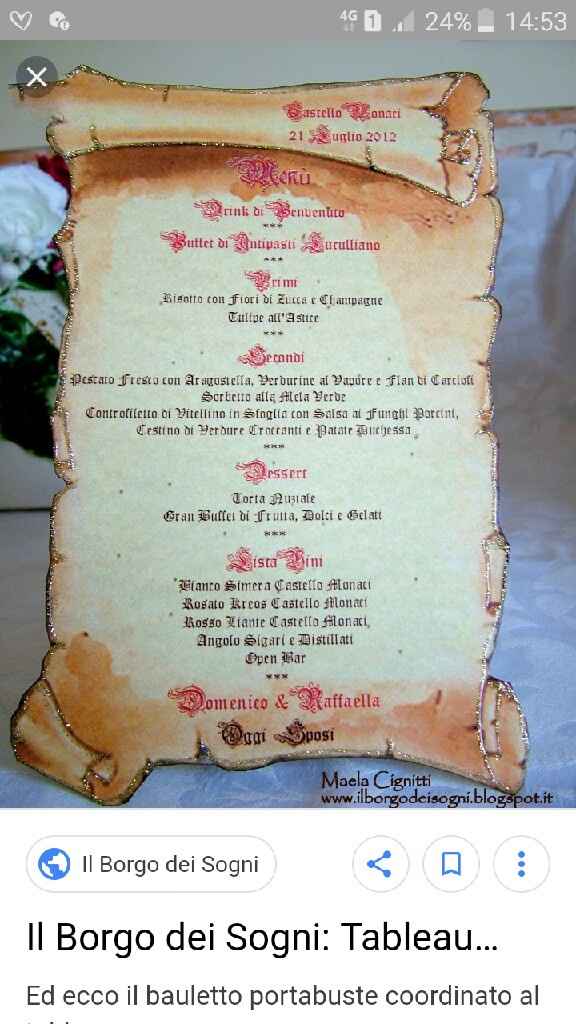 4G 1 24% 14:53
Castello Monaci
21 Luglio 2012
Menù
Drink di Benvenuto
***
Buffet di Antipasti Luculliano
***
Primi
Risotto con Fiori di Zucca e Champagne
Tulipe all'Astice
***
Secondi
Pescato Fresco con Aragostella, Verdurine al Vapore e Flan di Carciofi
Sorbetto alla Mela Verde
Controfiletto di Vitellino in Sfoglia con Salsa ai Funghi Porcini,
Cestino di Verdure Croccanti e Patate Duchessa
***
Dessert
Torta Nuziale
Gran Buffet di Frutta, Dolci e Gelati
***
Lista Vini
Bianco Simera Castello Monaci
Rosato Kreos Castello Monaci
Rosso Liante Castello Monaci,
Angolo Sigari e Distillati
Open Bar
***
Domenico & Raffaella
Oggi Sposi
Maela Cignitti
www.ilborgodeisogni.blogspot.it
Il Borgo dei Sogni
Il Borgo dei Sogni: Tableau...
Ed ecco il bauletto portabuste coordinato al